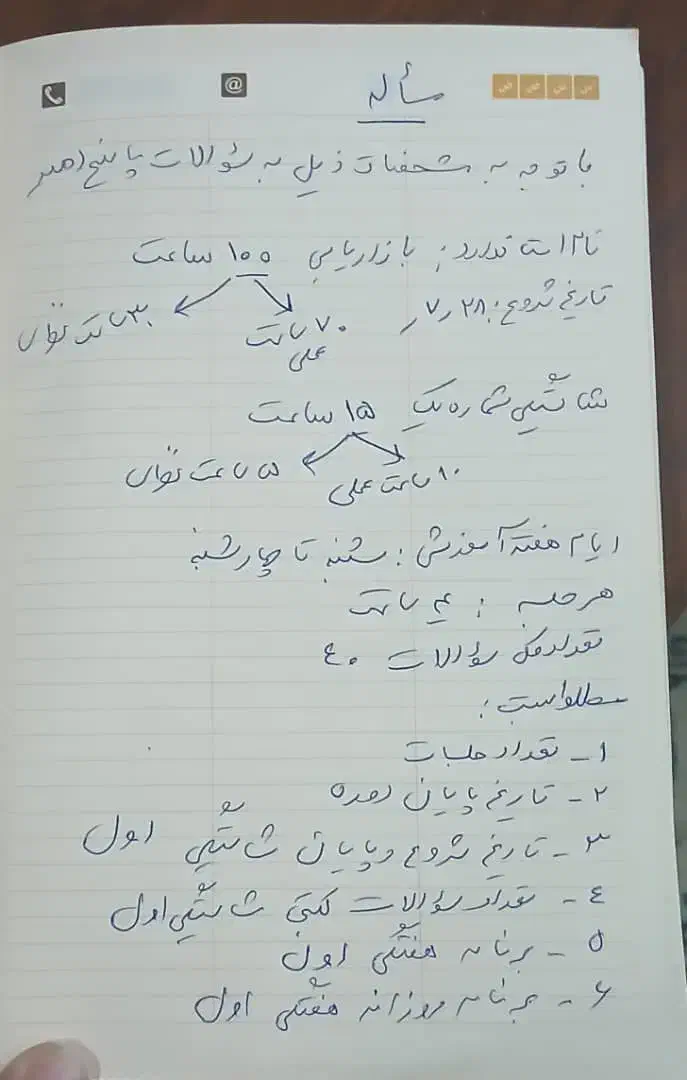 مسأله
با توجه به مشخصات ذیل به سؤالات پاسخ دهید
نام استاندارد: بازاریابی ۱۰۰ ساعت
تاریخ شروع: ۷٫۲۸
۷۰ ساعت عملی
۳۰ ساعت تئوری
شایستگی شماره یک ۱۵ ساعت
۱۰ ساعت عملی
۵ ساعت تئوری
ایام هفته آموزش: شنبه تا چهارشنبه
هر جلسه: ۴ ساعت
تعداد کل سؤالات ۴۰
مطلوبست:
۱- تعداد جلسات
۲- تاریخ پایان دوره
۳- تاریخ شروع و پایان شایستگی اول
۴- تعداد سؤالات کتبی شایستگی اول
۵- برنامه هفتگی اول
۶- برنامه روزانه هفتگی اول